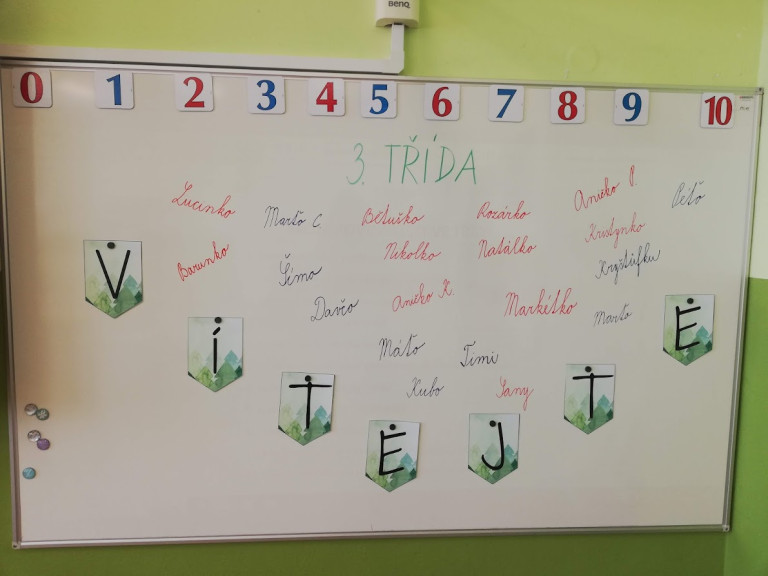 BENQ
0 1 2 3 4 5 6 7 8 9 10
3. TŘÍDA
Lucinko
Marťo C.
Betuško
Rozárko
Aničko P.
Péťo
Barunko
Šímo
Nikolko
Natálko
Kristýnko
Kryštůfku
Davčo
Aničko K.
Markétko
Marťo
Máťo
Timi
Kubo
Sany
VÍTEJTE